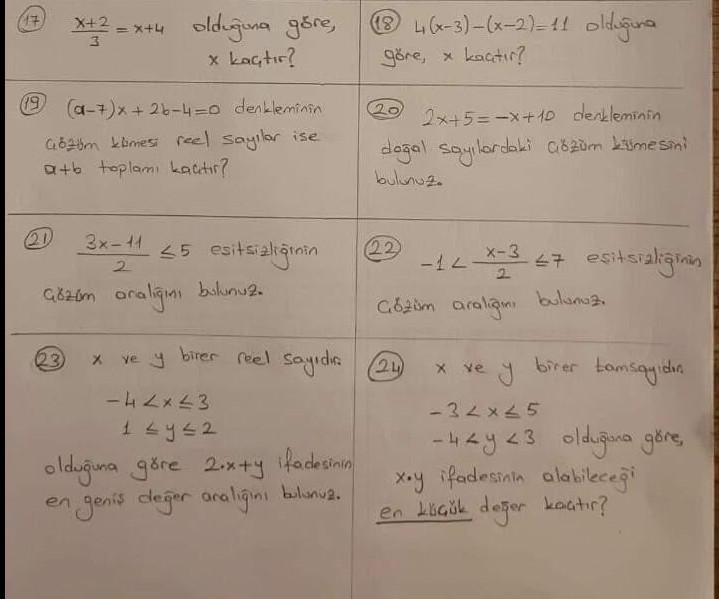 17 x+2/3 = x+4 olduğuna göre,
x kaçtır?
18 4(x-3)-(x-2)=11 olduğuna
göre, x kaçtır?
19 (a-7)x + 2b-4=0 denkleminin
çözüm kümesi reel sayılar ise
a+b toplamı kaçtır?
20 2x+5=-x+10 denkleminin
doğal sayılardaki çözüm kümesini
bulunuz.
21 3x-11/2 ≤ 5 eşitsizliğinin
çözüm aralığını bulunuz.
22 -1 < x-3/2 ≤ 7 eşitsizliğinin
çözüm aralığını bulunuz.
23 x ve y birer reel sayıdır.
-4 < x ≤ 3
1 ≤ y ≤ 2
olduğuna göre 2.x+y ifadesinin
en geniş değer aralığını bulunuz.
24 x ve y birer tamsayıdır.
-3 < x ≤ 5
-4 < y < 3 olduğuna göre,
x.y ifadesinin alabileceği
en küçük değer kaçtır?